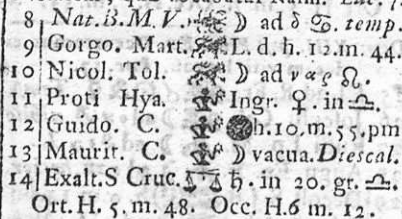 8 Nat. B. M. V. ☽ ad δ ♋. temp.
9 Gorgo. Mart. L. d. h. 12. m. 44.
10 Nicol. Tol. ☽ ad ν α ς ♌.
11 Proti Hya. Ingr. ♀. in ♎.
12 Guido. C. h. 10. m. 55. pm
13 Maurit. C. ☽ vacua. Diescal.
14 Exalt. S Cruc. ♄. in 20. gr. ♎.
Ort. H. 5. m. 48. Occ. H. 6 m. 12.